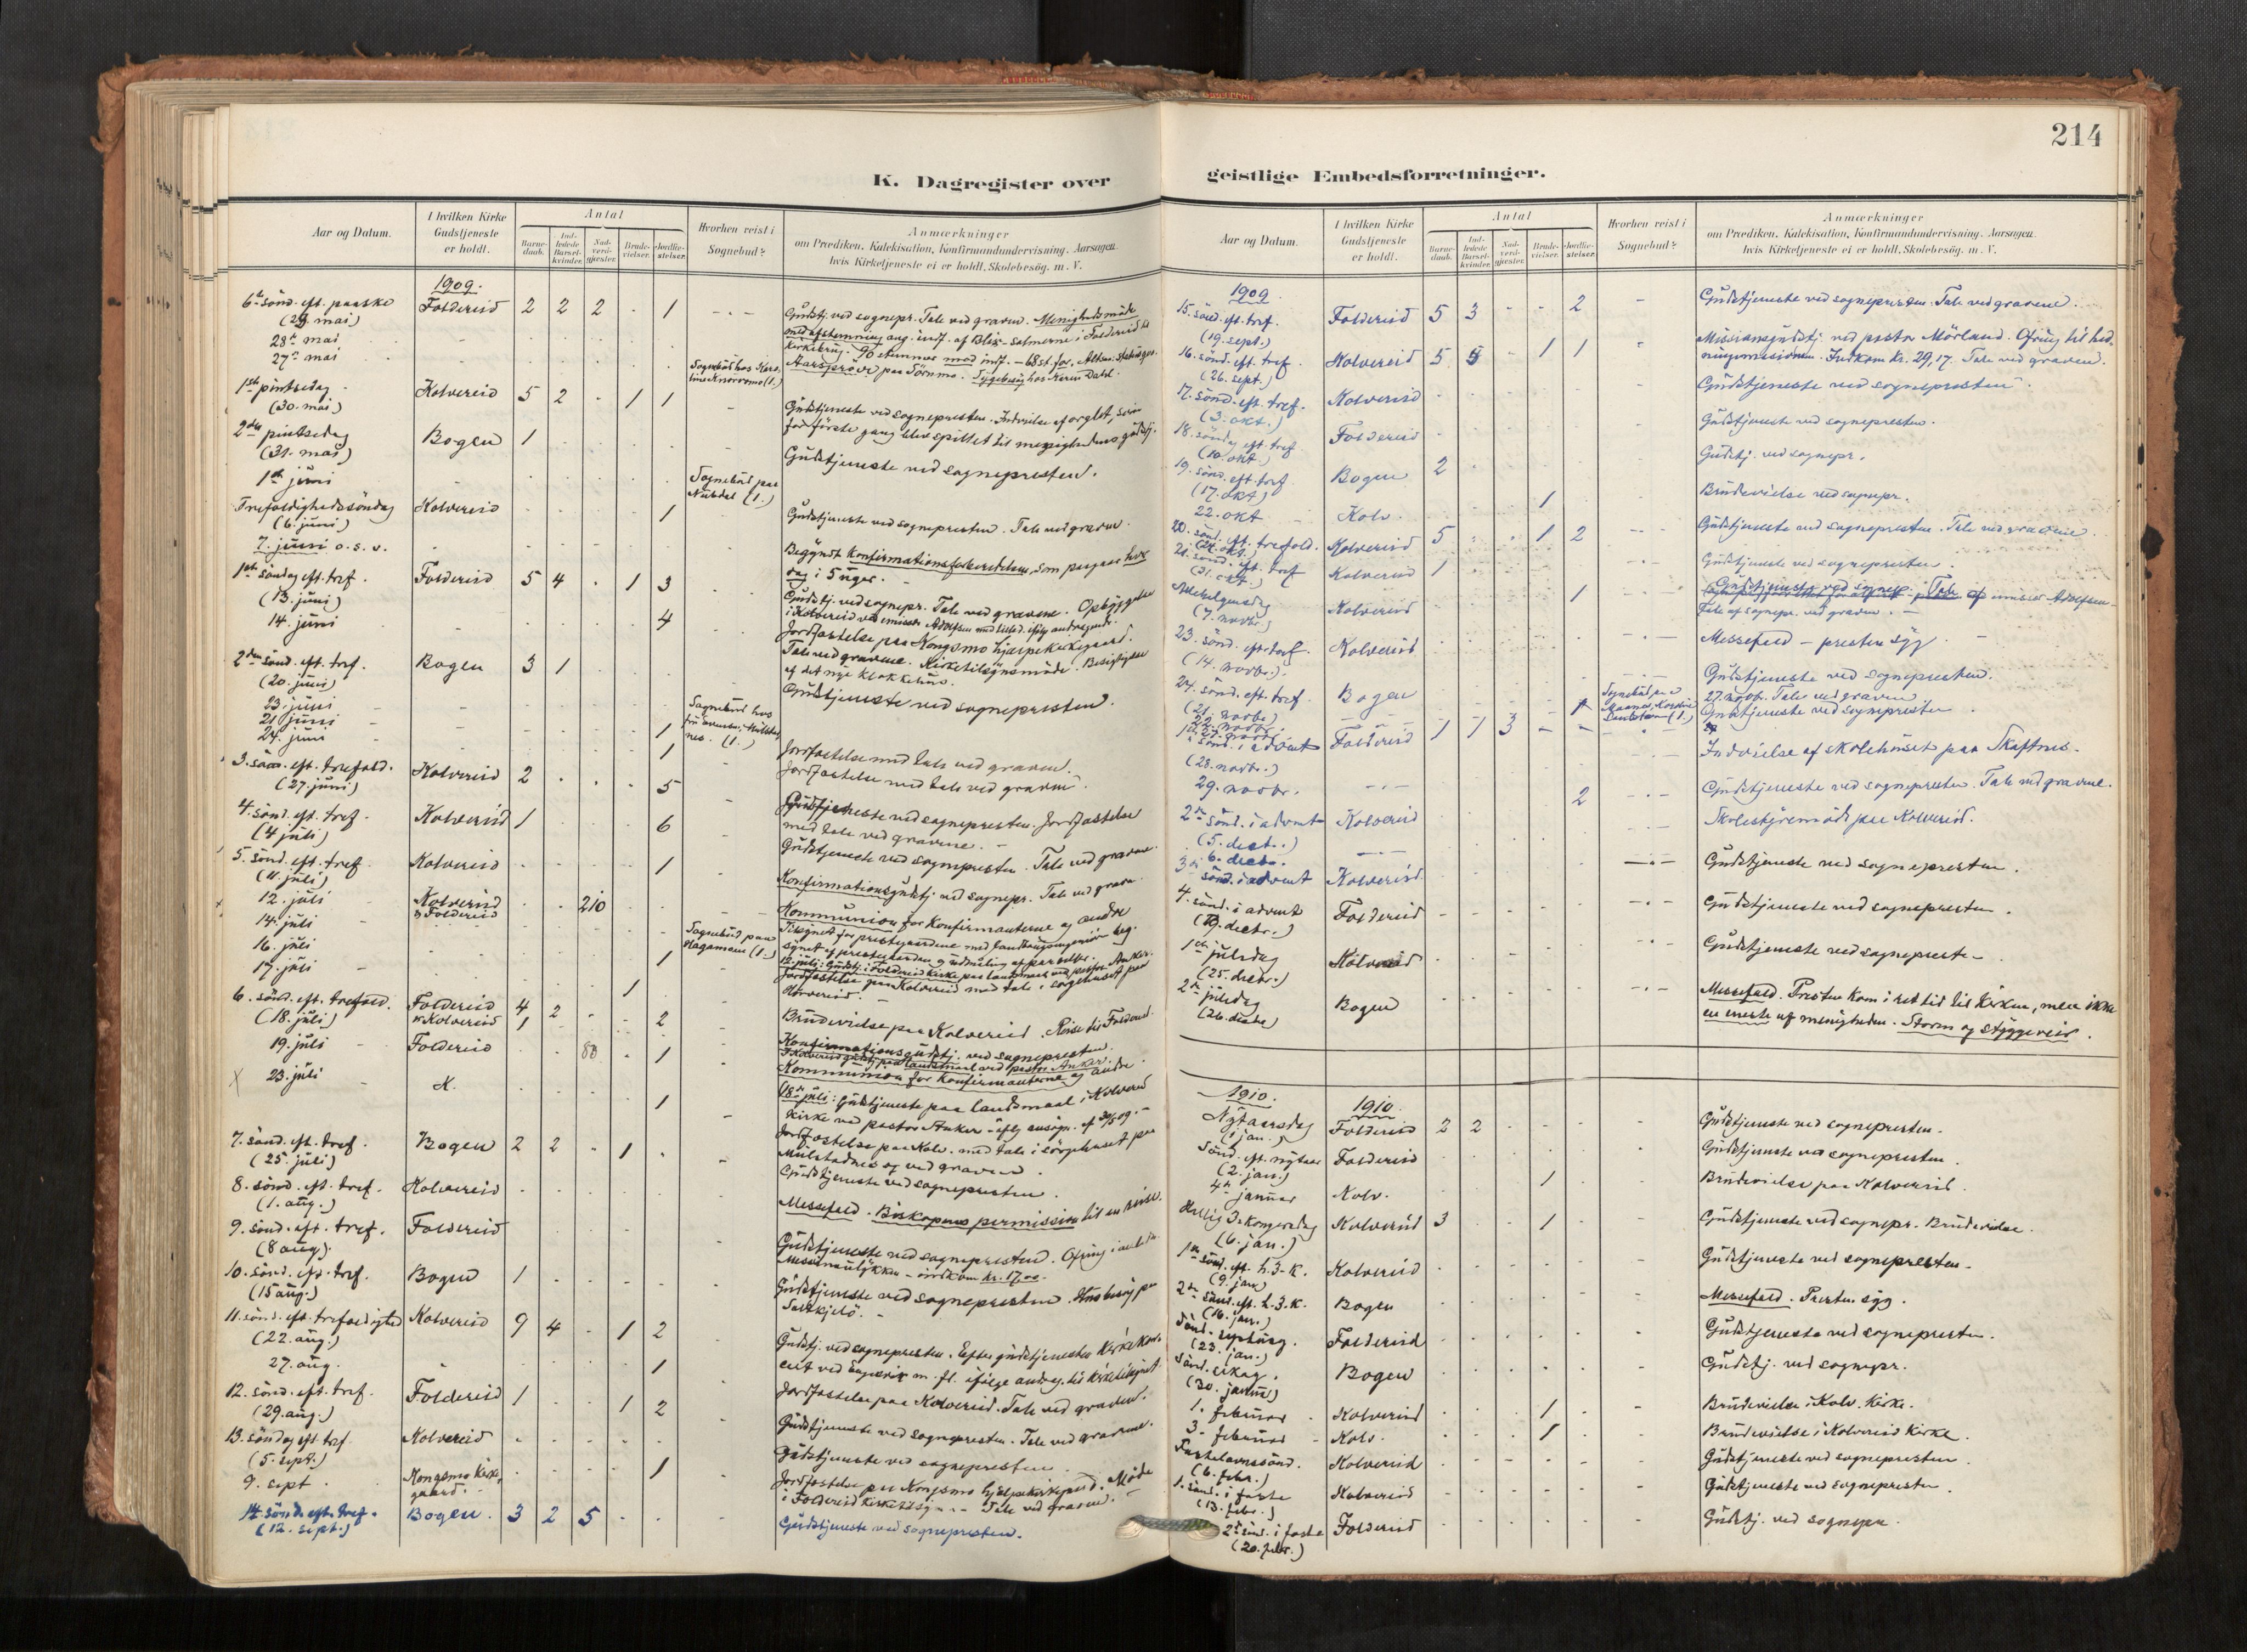 214
K. Dagregister over
geistlige Embedsforretninger.
Aar og Datum.
I hvilken Kirke Gudstjeneste er holdt.
Antal
Barne-daab.
Ind-ledede Barsel-kvinder.
Nad-verd-gjæster.
Brude-vielser.
Jordfæ-stelser.
Hvorhen reist i Sognebud?
Anmærkninger
om Prædiken, Katekisation, Konfirmandundervisning, Aarsagen
hvis Kirketjeneste ei er holdt, Skolebesøg. m. V.
1909.
6te sönd. eft. paaske Foldereid 2 2 2 . 1 Gudstj. ved sognepr. Tale ved graven. Menighedsmöde
(23. mai) med afstemning ang. indf. af Blix-salmerne i Foldereid
28de mai
kirkebrug. 90 stemmer mod indf. - 68 st. for.
27de mai Sognebud hos
1ste pintsedag Kolvereid 5 2 . 1 1
(30. mai) Gudstjeneste ved sognepresten. Indvielse af orglet, som
for förste gang blev spillet til menighedens gudstj.
2den pintsedag Bogen 1
(31. mai) Gudstjeneste ved sognepresten.
1ste juni Sognebud paa
(1.)
Trefoldighedssöndag Kolvereid 1 Gudstjeneste ved sognepresten. Tale ved graven.
(6. juni)
7. juni o.s.v. Begyndt konfirmationsforberedelsen, som pagaar hver
dag i 5 uger.
1ste söndag eft. tref. Foldereid 5 4 . 1 3 Gudstj. ved sognepr. Tale ved gravene.
(13. juni)
14. juni 4 Jordfæstelse paa Kongsmo hjælpekirkegaard.
Tale ved gravene. Kirketilsynsmöde. Besigtigelse
af det nye klokkehus.
2den sönd. eft. tref. Bogen 3 1 Gudstjeneste ved sognepresten.
(20. juni)
23. juni Sognebud hos
21. juni 1 Jordfæstelse med tale ved graven.
24. juni 1 Jordfæstelse med tale ved graven.
3. sönd. eft. trefold. Kolvereid 2 . . . 5 Gudstjeneste ved sognepresten. Jordfæstelse
(27. juni) med tale ved gravene.
4. sönd. eft. tref. Kolvereid 1 6 Gudstjeneste ved sognepresten. Tale ved gravene.
(4. juli)
5. sönd. eft. tref. Kolvereid 1 Konfirmationsgudstj. ved sognepr. Tale ved graven.
(11. juli)
12. juli Kolvereid 210 Kommunion for konfirmanterne og andre
& Foldereid
14. juli
16. juli Sognebud paa
17. juli
Jordfæstelse paa Kolvereid med tale i sörgehuset paa
6. sönd. eft. trefold. Foldereid 4 2 . . 2 Brudevielse paa Kolvereid. Reise til Foldereid.
(18. juli) & Kolvereid 1 Konfirmationsgudstj. ved sognepresten.
19. juli Foldereid 80 . 1 Kommunion for konfirmanterne og andre
23. juli K. 1
18de juli: Gudstjeneste paa landsmaal i Kolvereid
kirke ved pastor Anker
Jordfæstelse paa Kolv. med tale i sörgehuset paa
og ved graven.
7. sönd. eft. tref. Bogen 2 2 . 1 . Gudstjeneste ved sognepresten.
(25. juli)
8. sönd. eft. tref. Kolvereid Messefald. Biskopens permission til en reise.
(1. aug.)
9. sönd. eft. tref. Foldereid Gudstjeneste ved sognepresten.
(8 aug.) kr. 17.00
10. sönd. eft. tref. Bogen 1 Gudstjeneste ved sognepresten. Husbesög paa
(15 aug.)
11. sönd. eft. trefoldighed Kolvereid 9 4 . 1 2 Gudstj. ved sognepresten. Efter gudstjenesten
(22. aug.)
27. aug. 1 Jordfæstelse paa Kolvereid. Tale ved graven.
12. sönd. eft. tref. Foldereid 1 . . 1 2 Gudstjeneste ved sognepresten. Tale ved gravene.
(29. aug.)
13. söndag eft. tref. Kolvereid Gudstjeneste ved sognepresten
(5. sept.)
9. sept. Kongsmo kirke-gaard. 1 Jordfæstelse paa Kongsmo hjælpekirkegaard. Möde
i Foldereid kirketilsyn. - Tale ved graven.
14. sönd. eft. tref. Bogen. 3 2 5 Gudstjeneste ved sognepresten.
(12. sept.)
Aar og Datum.
I hvilken Kirke Gudstjeneste er holdt.
Antal
Barne-daab.
Ind-ledede Barsel-kvinder.
Nad-verd-gjæster.
Brude-vielser.
Jordfæ-stelser.
Hvorhen reist i Sognebud?
Anmærkninger
om Prædiken, Katekisation, Konfirmandundervisning, Aarsagen
hvis Kirketjeneste ei er holdt, Skolebesøg. m. V.
1909.
15. sönd. eft. tref. Foldereid 5 3 - - 2 - Gudstjeneste ved sognepresten. Tale ved gravene.
(19. sept.)
16. sönd. eft. tref. Kolvereid 5 5 . 1 1 Missionsgudstj. ved pastor Mörland. Ofring til hed-
(26. sept.) ningemissionen. Indkom kr. 29,17. Tale ved graven.
17. sönd. eft. tref. Kolvereid Gudstjeneste ved sognepresten.
(3. okt.)
18. söndag eft. tref. Foldereid Gudstjeneste ved sognepresten.
(10. okt.)
19. sönd. eft. tref. Bogen 2 Gudstj. ved sognepr.
(17. okt)
22. okt Kolv. 1 Brudevielse ved sognepr.
20. sönd. eft. trefold. Kolvereid 5 . . 1 2 Gudstjeneste ved sognepresten. Tale ved gravene.
(24. okt.)
21. sönd. eft. tref Kolvereid 1 Gudstjeneste ved sognepresten.
(31. okt.)
Allehelgensdag Kolvereid 1 Tale af emissær Adolfsen
(7. novbr.) Tale af sognepr. ved graven.
23. sönd. eft. tref. Kolvereid Messefald - presten syg.
(14. novbr.)
24. sönd. eft. tref. Bogen Gudstjeneste ved sognepresten.
(21. novbr.)
22. novbr. Sognebud paa
27. novbr. Tale ved graven
1ste sönd. i advent Foldereid 1 1 3 - - Gudstjeneste ved sognepresten
(28. novbr.)
29. novbr. Indvielse af skolehuset paa Skaftnes.
2den sönd. i advent Kolvereid 2 Gudstjeneste ved sognepresten. Tale ved gravene.
(5. decbr.)
6. decbr. Skolestyremöde paa Kolvereid.
3die sönd. i advent Kolvereid Gudstjeneste ved sognepresten.
4. sönd. i advent Foldereid Gudstjeneste ved sognepresten.
(19. decbr.)
1ste juledag Kolvereid Gudstjeneste ved sognepreste-
(25. decbr.)
2den juledag Bogen Messefald. Presten kom i ret tid til kirken, men ikke
(26. decbr) en eneste af menigheden. Storm og styggeveir.
1910. 1910.
Nytaarsdag Foldereid 2 2 Gudstjeneste ved sognepresten.
(1 jan.)
Sönd. eft. nytaar Foldereid Gudstjeneste ved sognepresten.
(2. jan.)
4de januar Kolv. 1 Brudevielse paa Kolvereid.
Hellig 3 kongersdag Kolvereid 3 . . 1 Gudstjeneste ved sognepr. Brudevielse.
(6. jan.)
1ste sönd. eft. h. 3-k. Kolvereid Gudstjeneste ved sognepresten.
(9. jan)
2den sönd. eft. h. 3. k. Bogen Messefald. Presten syg.
(16. jan.)
Sönd. septuag. Foldereid Gudstjeneste ved sognepresten.
(23. jan.)
Bogen Gudstj. ved sognepr.
(30. januar)
1. februar Kolvereid 1 Brudevielse i Kolv. kirke.
3. februar Kolv. 1 Brudevielse i Kolvereid kirke.
Fastelavnssönd. Kolvereid Gudstjeneste ved sognepresten
(6. febr.)
1. sönd. i faste Kolvereid Gudstjeneste ved sognepresten.
(13. febr.)
2d sönd. i faste Foldereid Gudstj. ved sognepr.
(20. febr.)